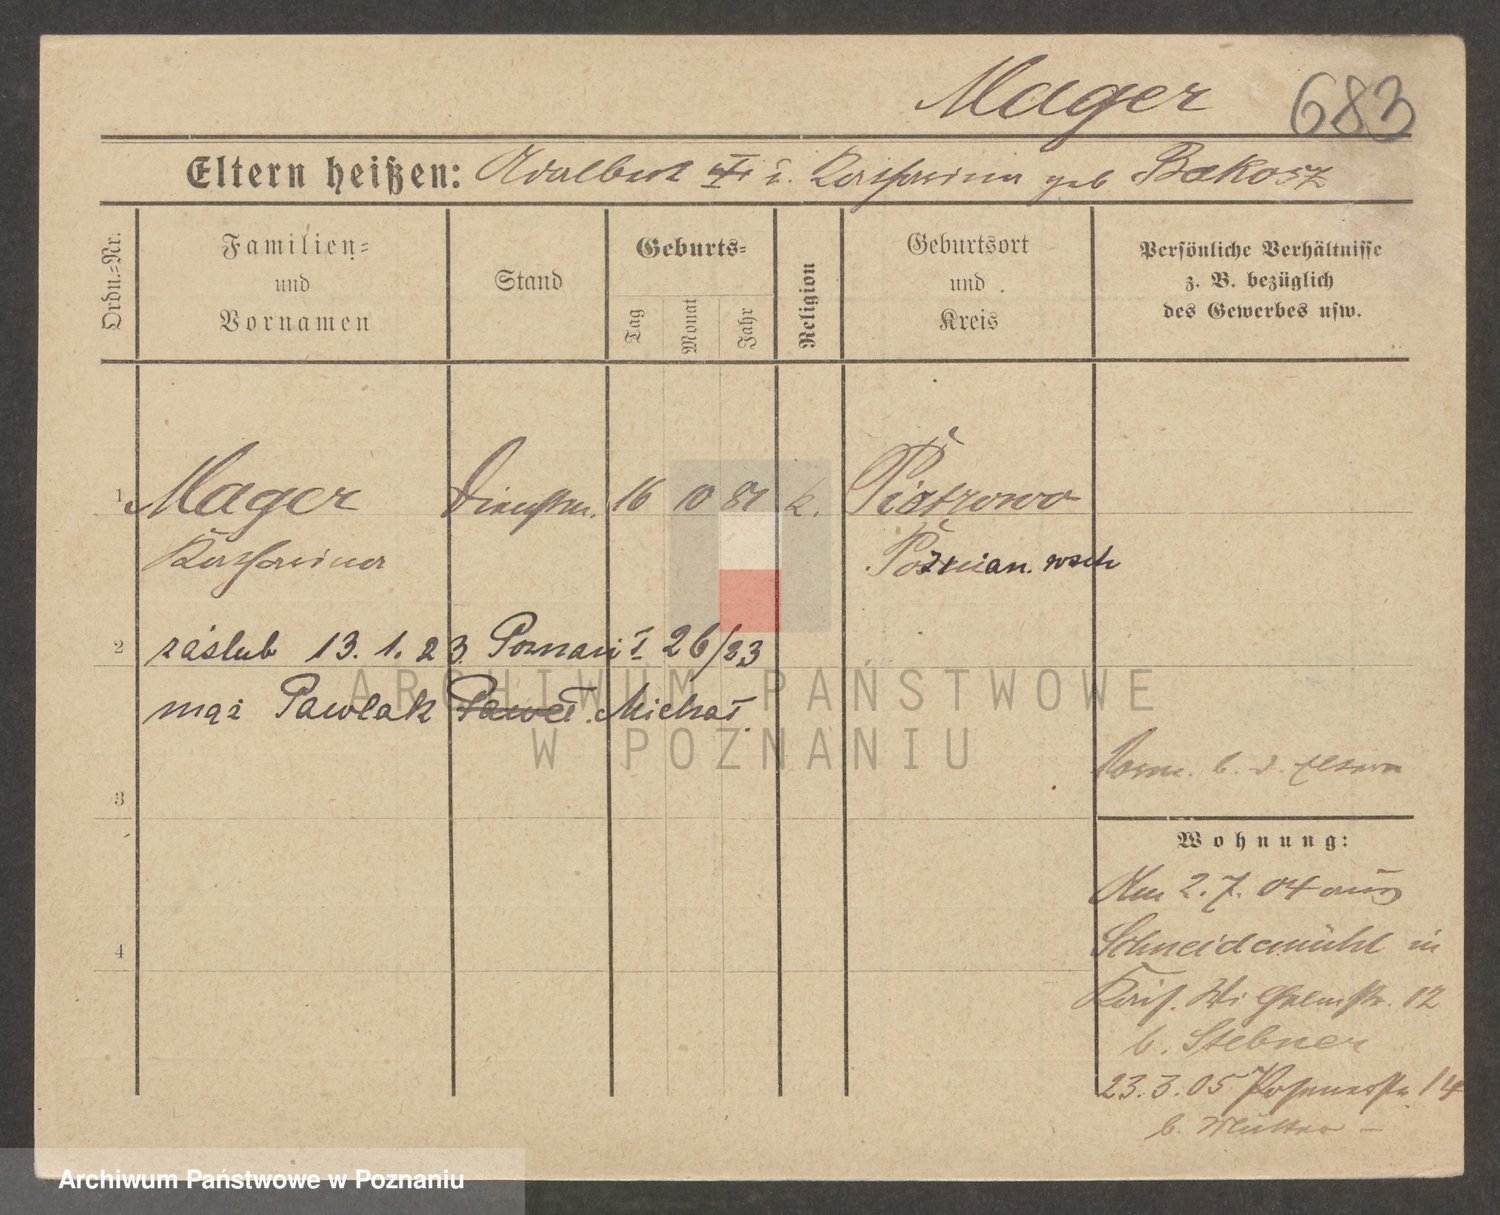 Mager 683
Eltern heißen: Adalbert u. Katharina geb Bakosz
Ordn.=Nr.
Familien=
und
Vornamen
Stand
Geburts=
Tag
Monat
Jahr
Religion
Geburtsort
und
Kreis
Persönliche Verhältnisse
z. B. bezüglich
des Gewerbes usw.
1 Mager Dienstm. 16 10 81 k. Piotrowo
Katharina Poznian. wsch
2 zaślub 13. 1. 23. Poznań I 26/23
mąż Pawlak Paweł. Michał.
3
4
b. d. Eltern
Wohnung:
Am 2. 7. 04 aus
Schneidemühl in
Kais. Wilhelmstr. 12
b. Stebner
23. 3. 05 Posenerstr. 14
b. Mutter -
ARCHIWUM PAŃSTWOWE
W POZNANIU
Archiwum Państwowe w Poznaniu